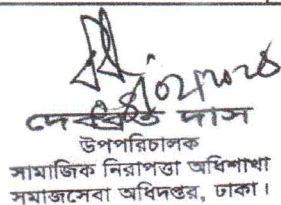 দেবব্রত দাস
উপপরিচালক
সামাজিক নিরাপত্তা অধিশাখা
সমাজসেবা অধিদপ্তর, ঢাকা।